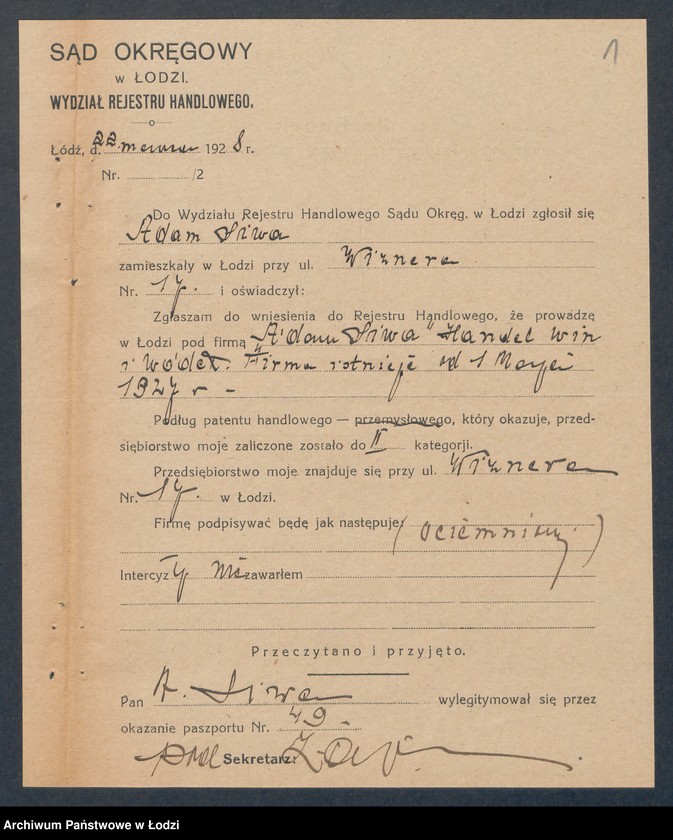 1
SĄD OKRĘGOWY
W ŁODZI.
WYDZIAŁ REJESTRU HANDLOWEGO.
Łódź, d. 22 1928 r.
Nr. /2
Do Wydziału Rejestru Handlowego Sądu Okręg. w Łodzi zgłosił się
Adam Siwa
zamieszkały w Łodzi przy ul. Wiznera
Nr. 17. i oświadczył:
Zgłaszam do wniesienia do Rejestru Handlowego, że prowadzę
w Łodzi pod firmą „Adam Siwa" Handel win
i wódek. Firma istnieje od 1
1927 r -
Podług patentu handlowego — przemysłowego, który okazuje, przed-
siębiorstwo moje zaliczone zostało do II kategorji.
Przedsiębiorstwo moje znajduje się przy ul. Wiznera
Nr. 17. w Łodzi.
Firmę podpisywać będę jak następuje: (ociemniały)
Intercyzy niezawarłem
Przeczytano i przyjęto.
Pan A. Siwa wylegitymował się przez
okazanie paszportu Nr. 49 -
Sekretarz:
Archiwum Państwowe w Łodzi